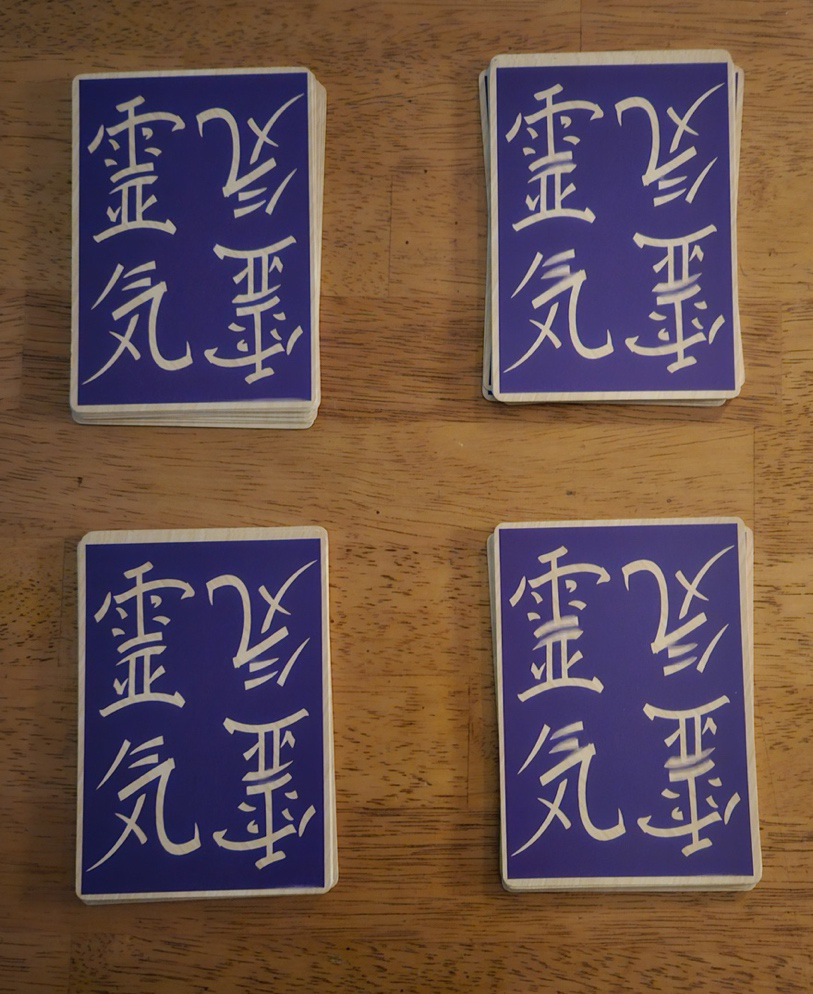 霊気
霊気
霊気
霊気
霊気
霊気
霊気
霊気